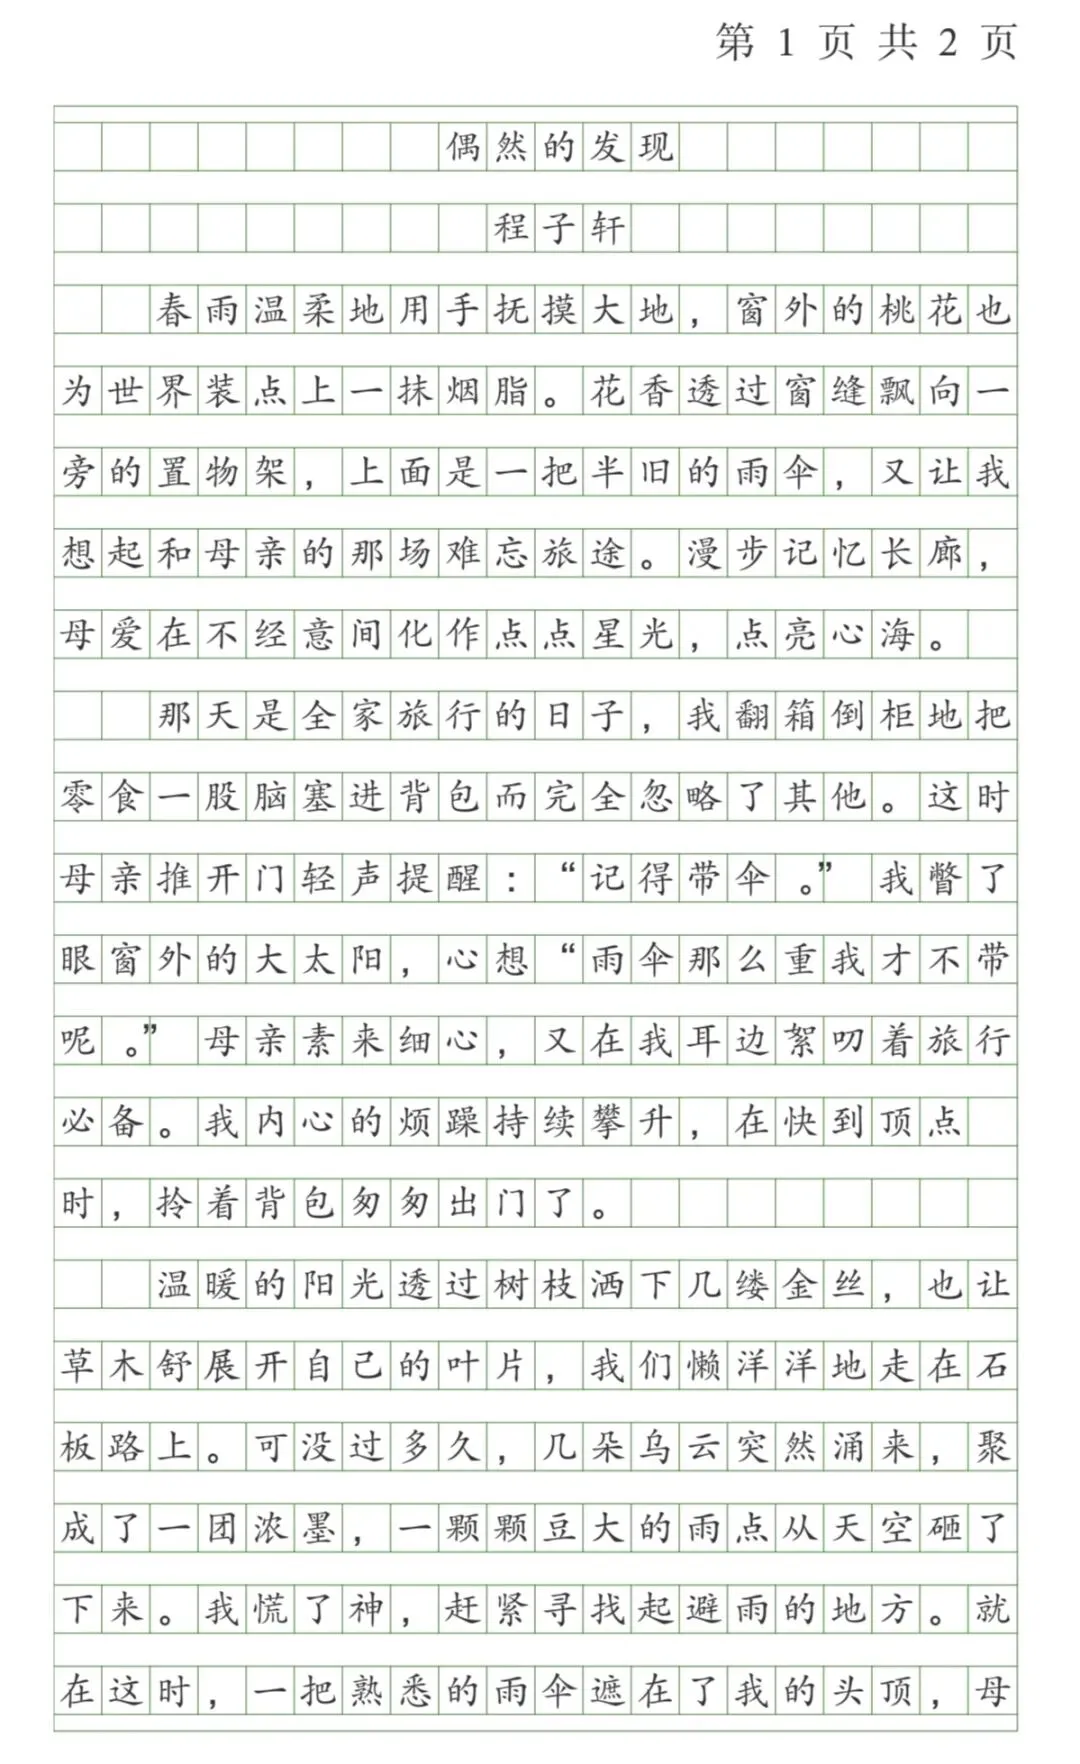 第 1 页 共 2 页
偶然的发现
程子轩
春雨温柔地用手抚摸大地，窗外的桃花也
为世界装点上一抹烟脂。花香透过窗缝飘向一
旁的置物架，上面是一把半旧的雨伞，又让我
想起和母亲的那场难忘旅途。漫步记忆长廊，
母爱在不经意间化作点点星光，点亮心海。
那天是全家旅行的日子，我翻箱倒柜地把
零食一股脑塞进背包而完全忽略了其他。这时
母亲推开门轻声提醒：“记得带伞。”我瞥了
眼窗外的大太阳，心想“雨伞那么重我才不带
呢。”母亲素来细心，又在我耳边絮叨着旅行
必备。我内心的烦躁持续攀升，在快到顶点
时，拎着背包匆匆出门了。
温暖的阳光透过树枝洒下几缕金丝，也让
草木舒展开自己的叶片，我们懒洋洋地走在石
板路上。可没过多久，几朵乌云突然涌来，聚
成了一团浓墨，一颗颗豆大的雨点从天空砸了
下来。我慌了神，赶紧寻找起避雨的地方。就
在这时，一把熟悉的雨伞遮在了我的头顶，母